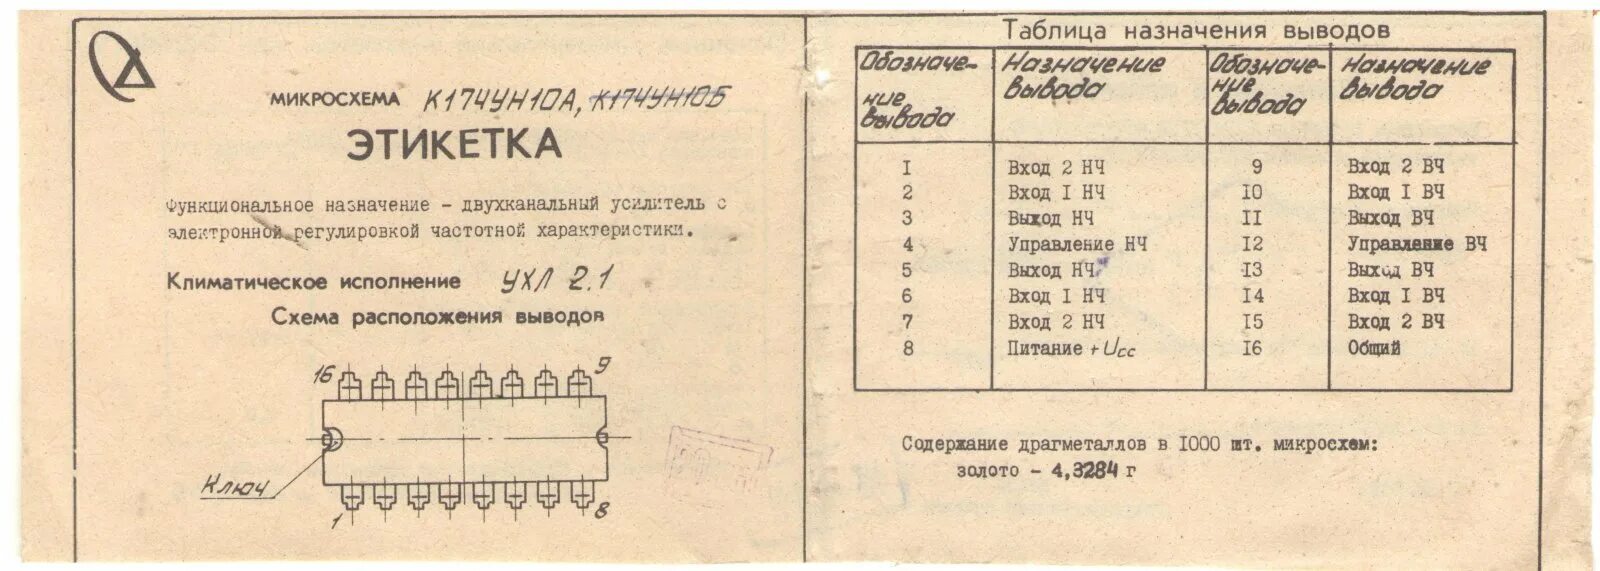 МИКРОСХЕМА К174УН10А, К174УН10Б
ЭТИКЕТКА
Функциональное назначение - двухканальный усилитель с
электронной регулировкой частотной характеристики.
Климатическое исполнение УХЛ 2.1
Схема расположения выводов
16 9
Ключ
1 8
Таблица назначения выводов
Обозначе- Назначение Обозначе- Назначение
ние вывода ние вывода
вывода вывода
I Вход 2 НЧ 9 Вход 2 ВЧ
2 Вход I НЧ IO Вход I ВЧ
3 Выход НЧ II Выход ВЧ
4 Управление НЧ I2 Управление ВЧ
5 Выход НЧ I3 Выход ВЧ
6 Вход I НЧ I4 Вход I ВЧ
7 Вход 2 НЧ I5 Вход 2 ВЧ
8 Питание + Ucc I6 Общий
Содержание драгметаллов в I000 шт. микросхем:
золото - 4,3284 г